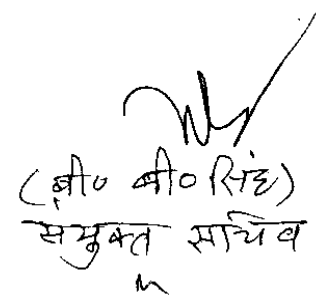 (बी० बी० सिंह)
संयुक्त सचिव